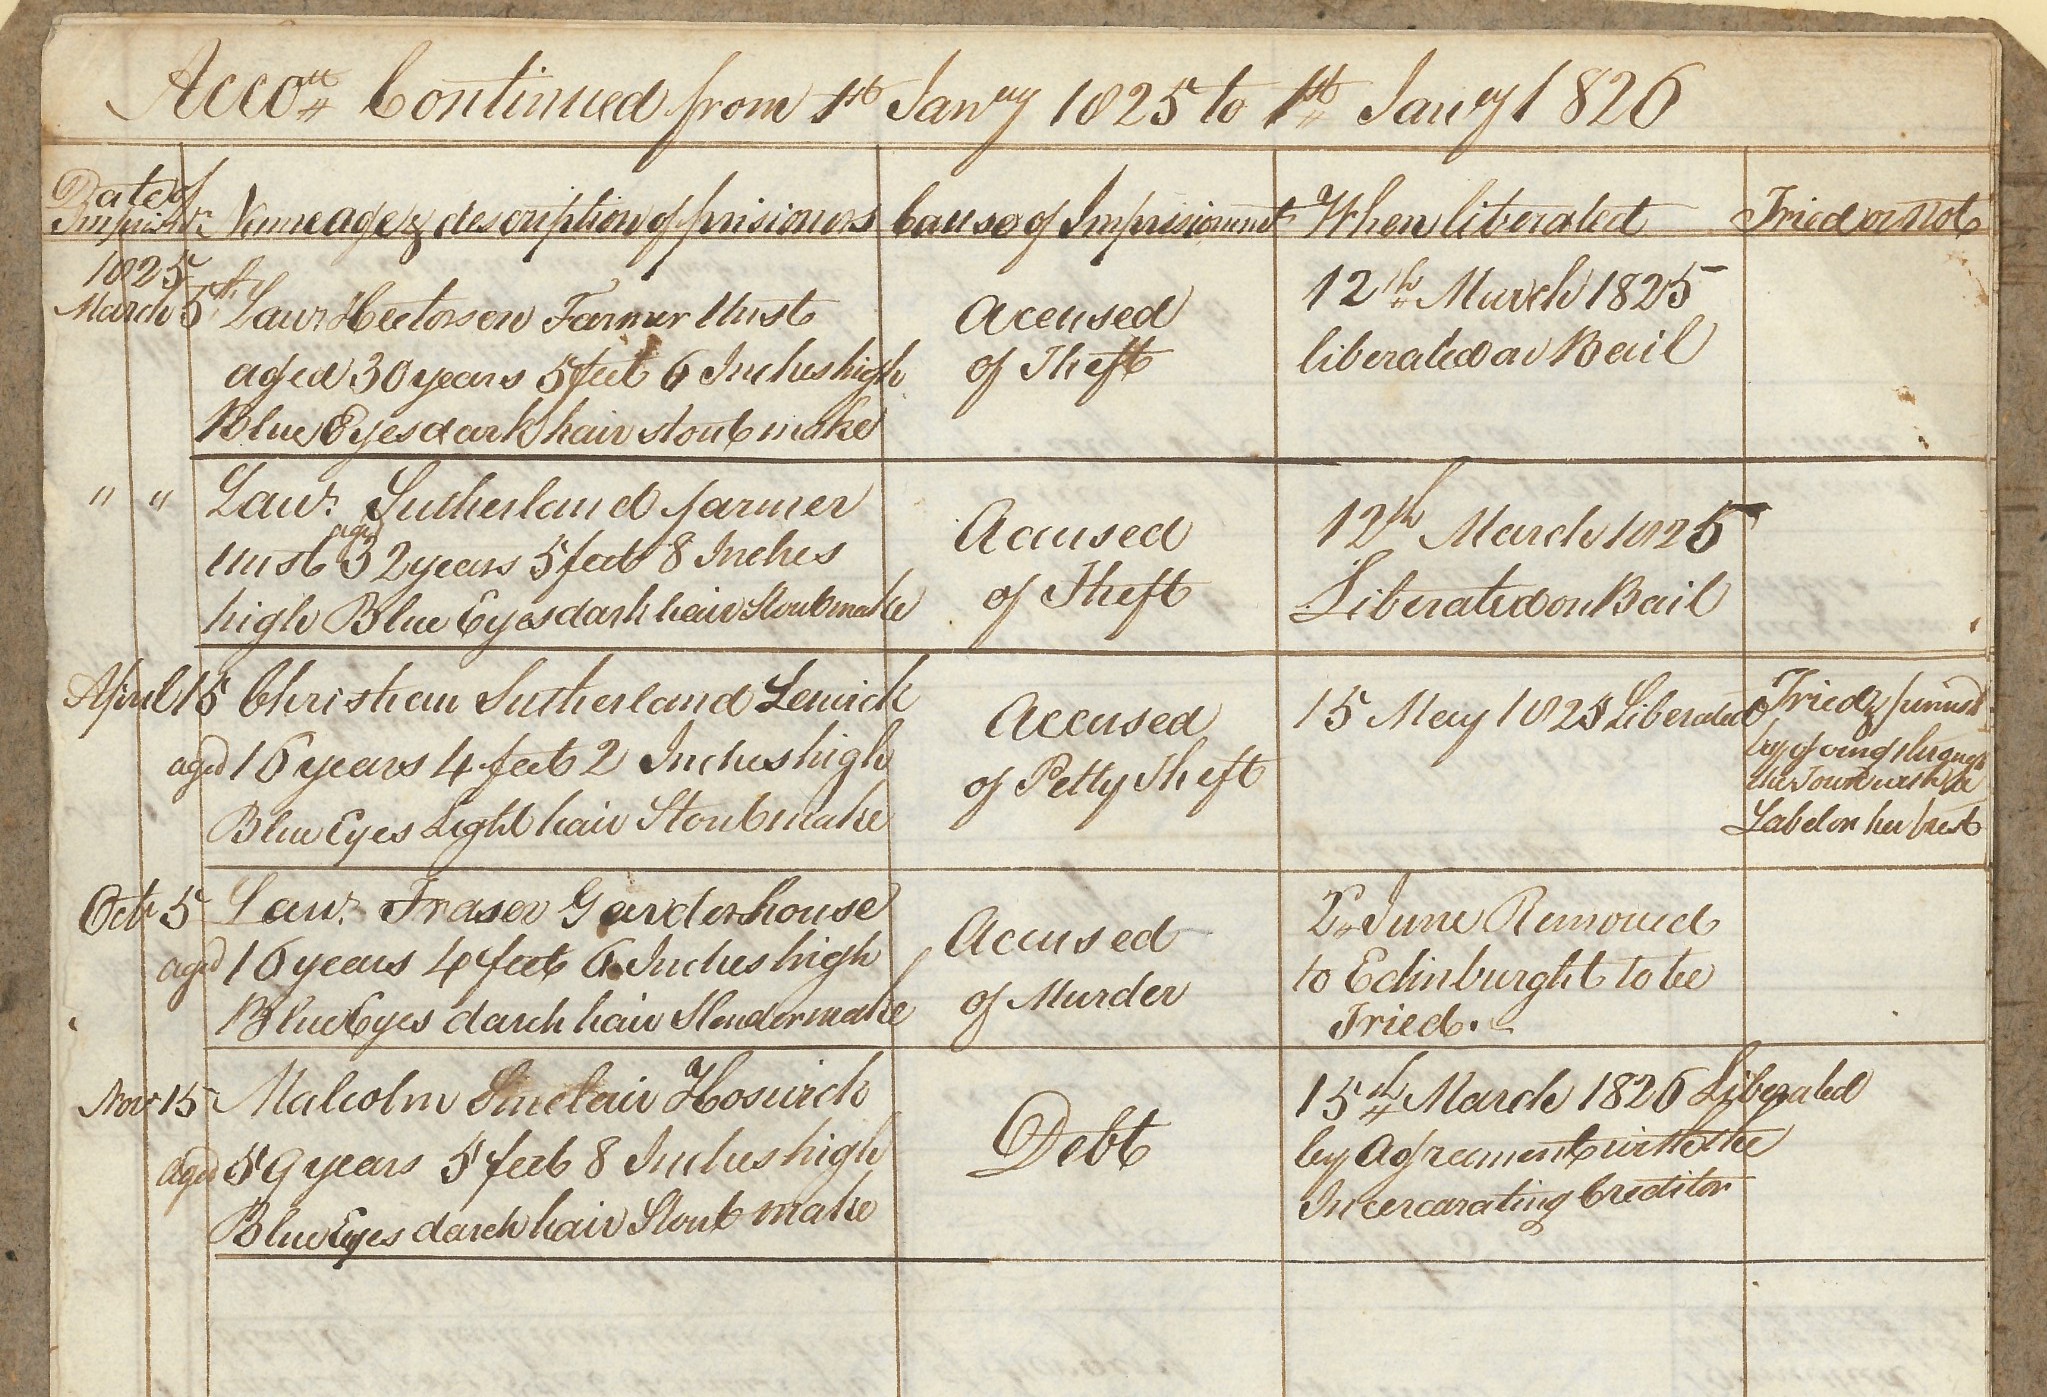 Accott Continued from 1st Janry 1825 to 1st Janry 1826
Date of
Name age & description of prisioners
Cause of Imprisionment
When liberated
Tried or Not
1825
March 5th
Lawr Hectorson Farmer Unst
aged 30 years 5 feet 6 Inches high
Blue Eyes dark hair stout make
Accused
of Theft
12th March 1825
liberated on Bail
" "
Lawr. Sutherland farmer
Unst aged 32 years 5 feet 8 Inches
high Blue Eyes dark hair Stout make
Accused
of Theft
12th March 1825
Liberated on Bail
April 15
Christian Sutherland Lerwick
aged 16 years 4 feet 2 Inches high
Blue Eyes Light hair Stout make
Accused
of Petty Theft
15 May 1825 Liberated
Tried &
by going through
the Town with a
Label on her brest
Octr 5
Lawr. Fraser Garderhouse
aged 16 years 4 feet 6 Inches high
Blue Eyes darck hair Slender make
Accused
of Murder
June Removed
to Edinburght to be
Tried.
Novr 15
Malcolm Sinclair Hoswick
aged 59 years 5 feet 8 Inches high
Blue Eyes darck hair Stout make
Debt
15th March 1826 Liberated
by Agreement with the
Incercarating Creditor